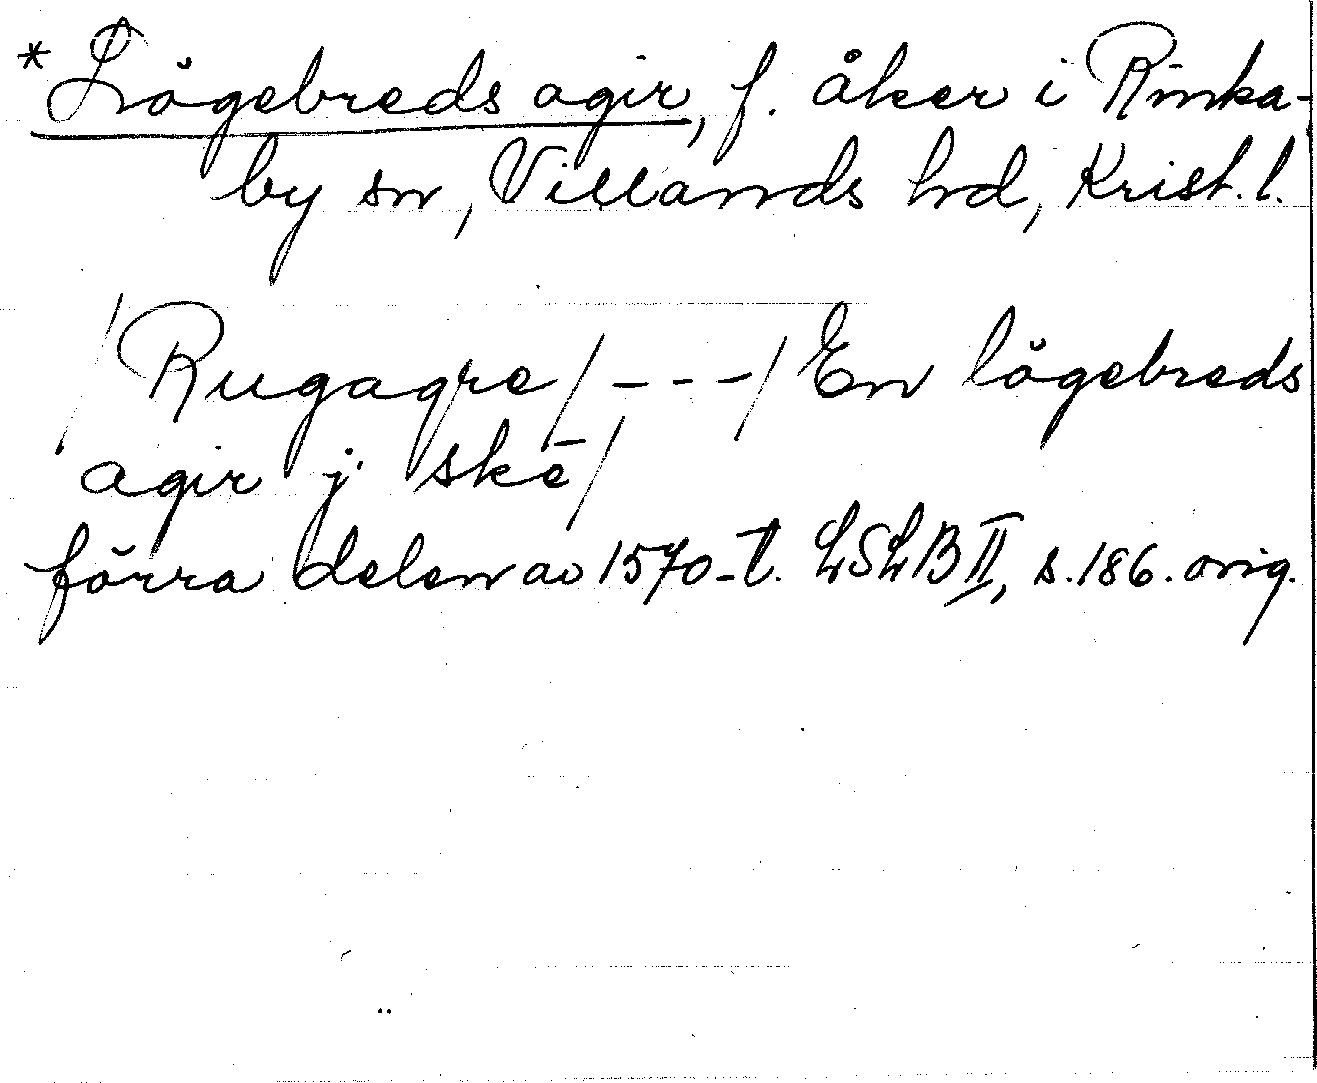 *Lögebreds agir, f. åker i Rinka-
by sn, Villands hd, Krist. l.
/Rugagre/---/En lögebreds
agir j skē/
förra delen av 1570-t. LSLB II, s. 186. orig.